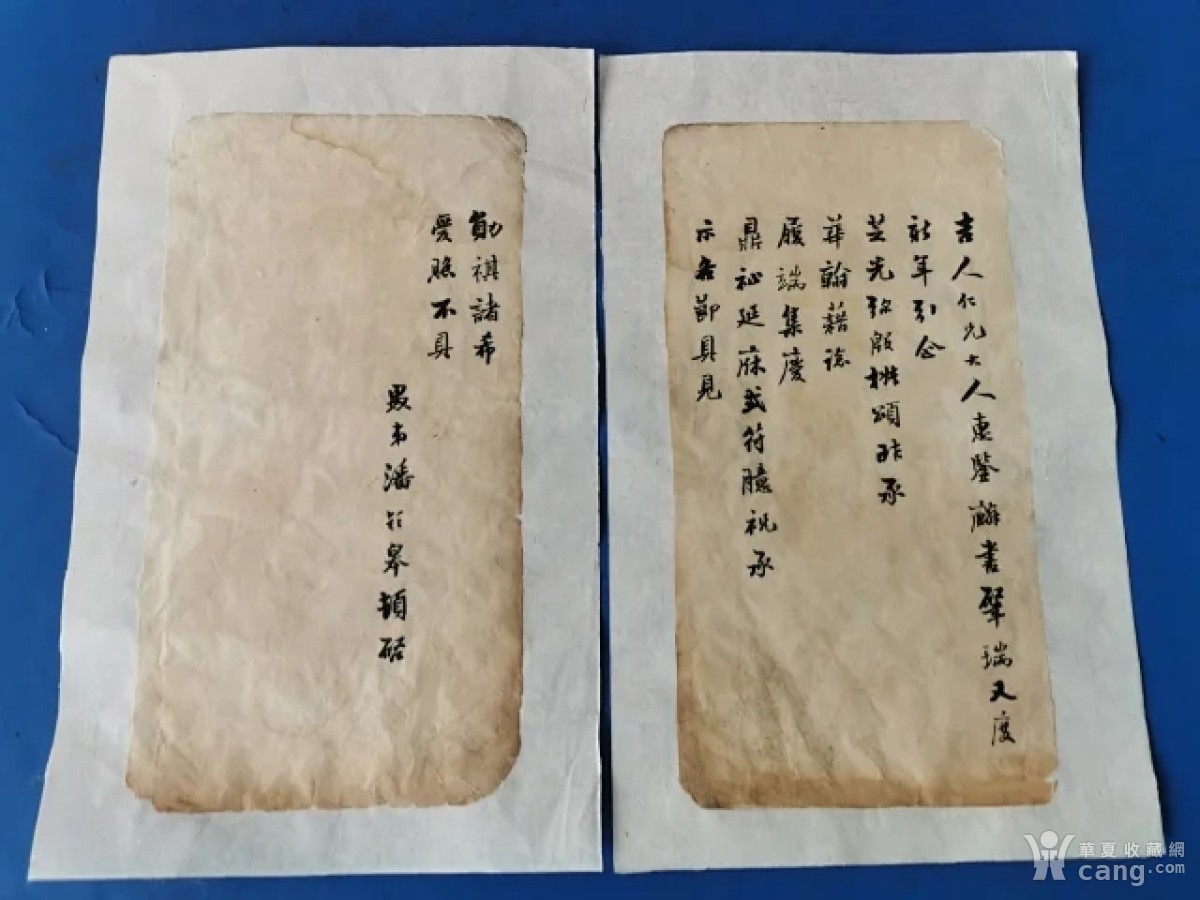 吉人仁兄大人惠鑒麟書肇瑞又度
新年引企
芝光弥殷撫頌昨承
華翰藉諗
履端集慶
鼎祉延庥式符臆祝承
示各節具見
勛祺諸希
愛照不具
潘 皋頓啓
華夏收藏網
cang.com